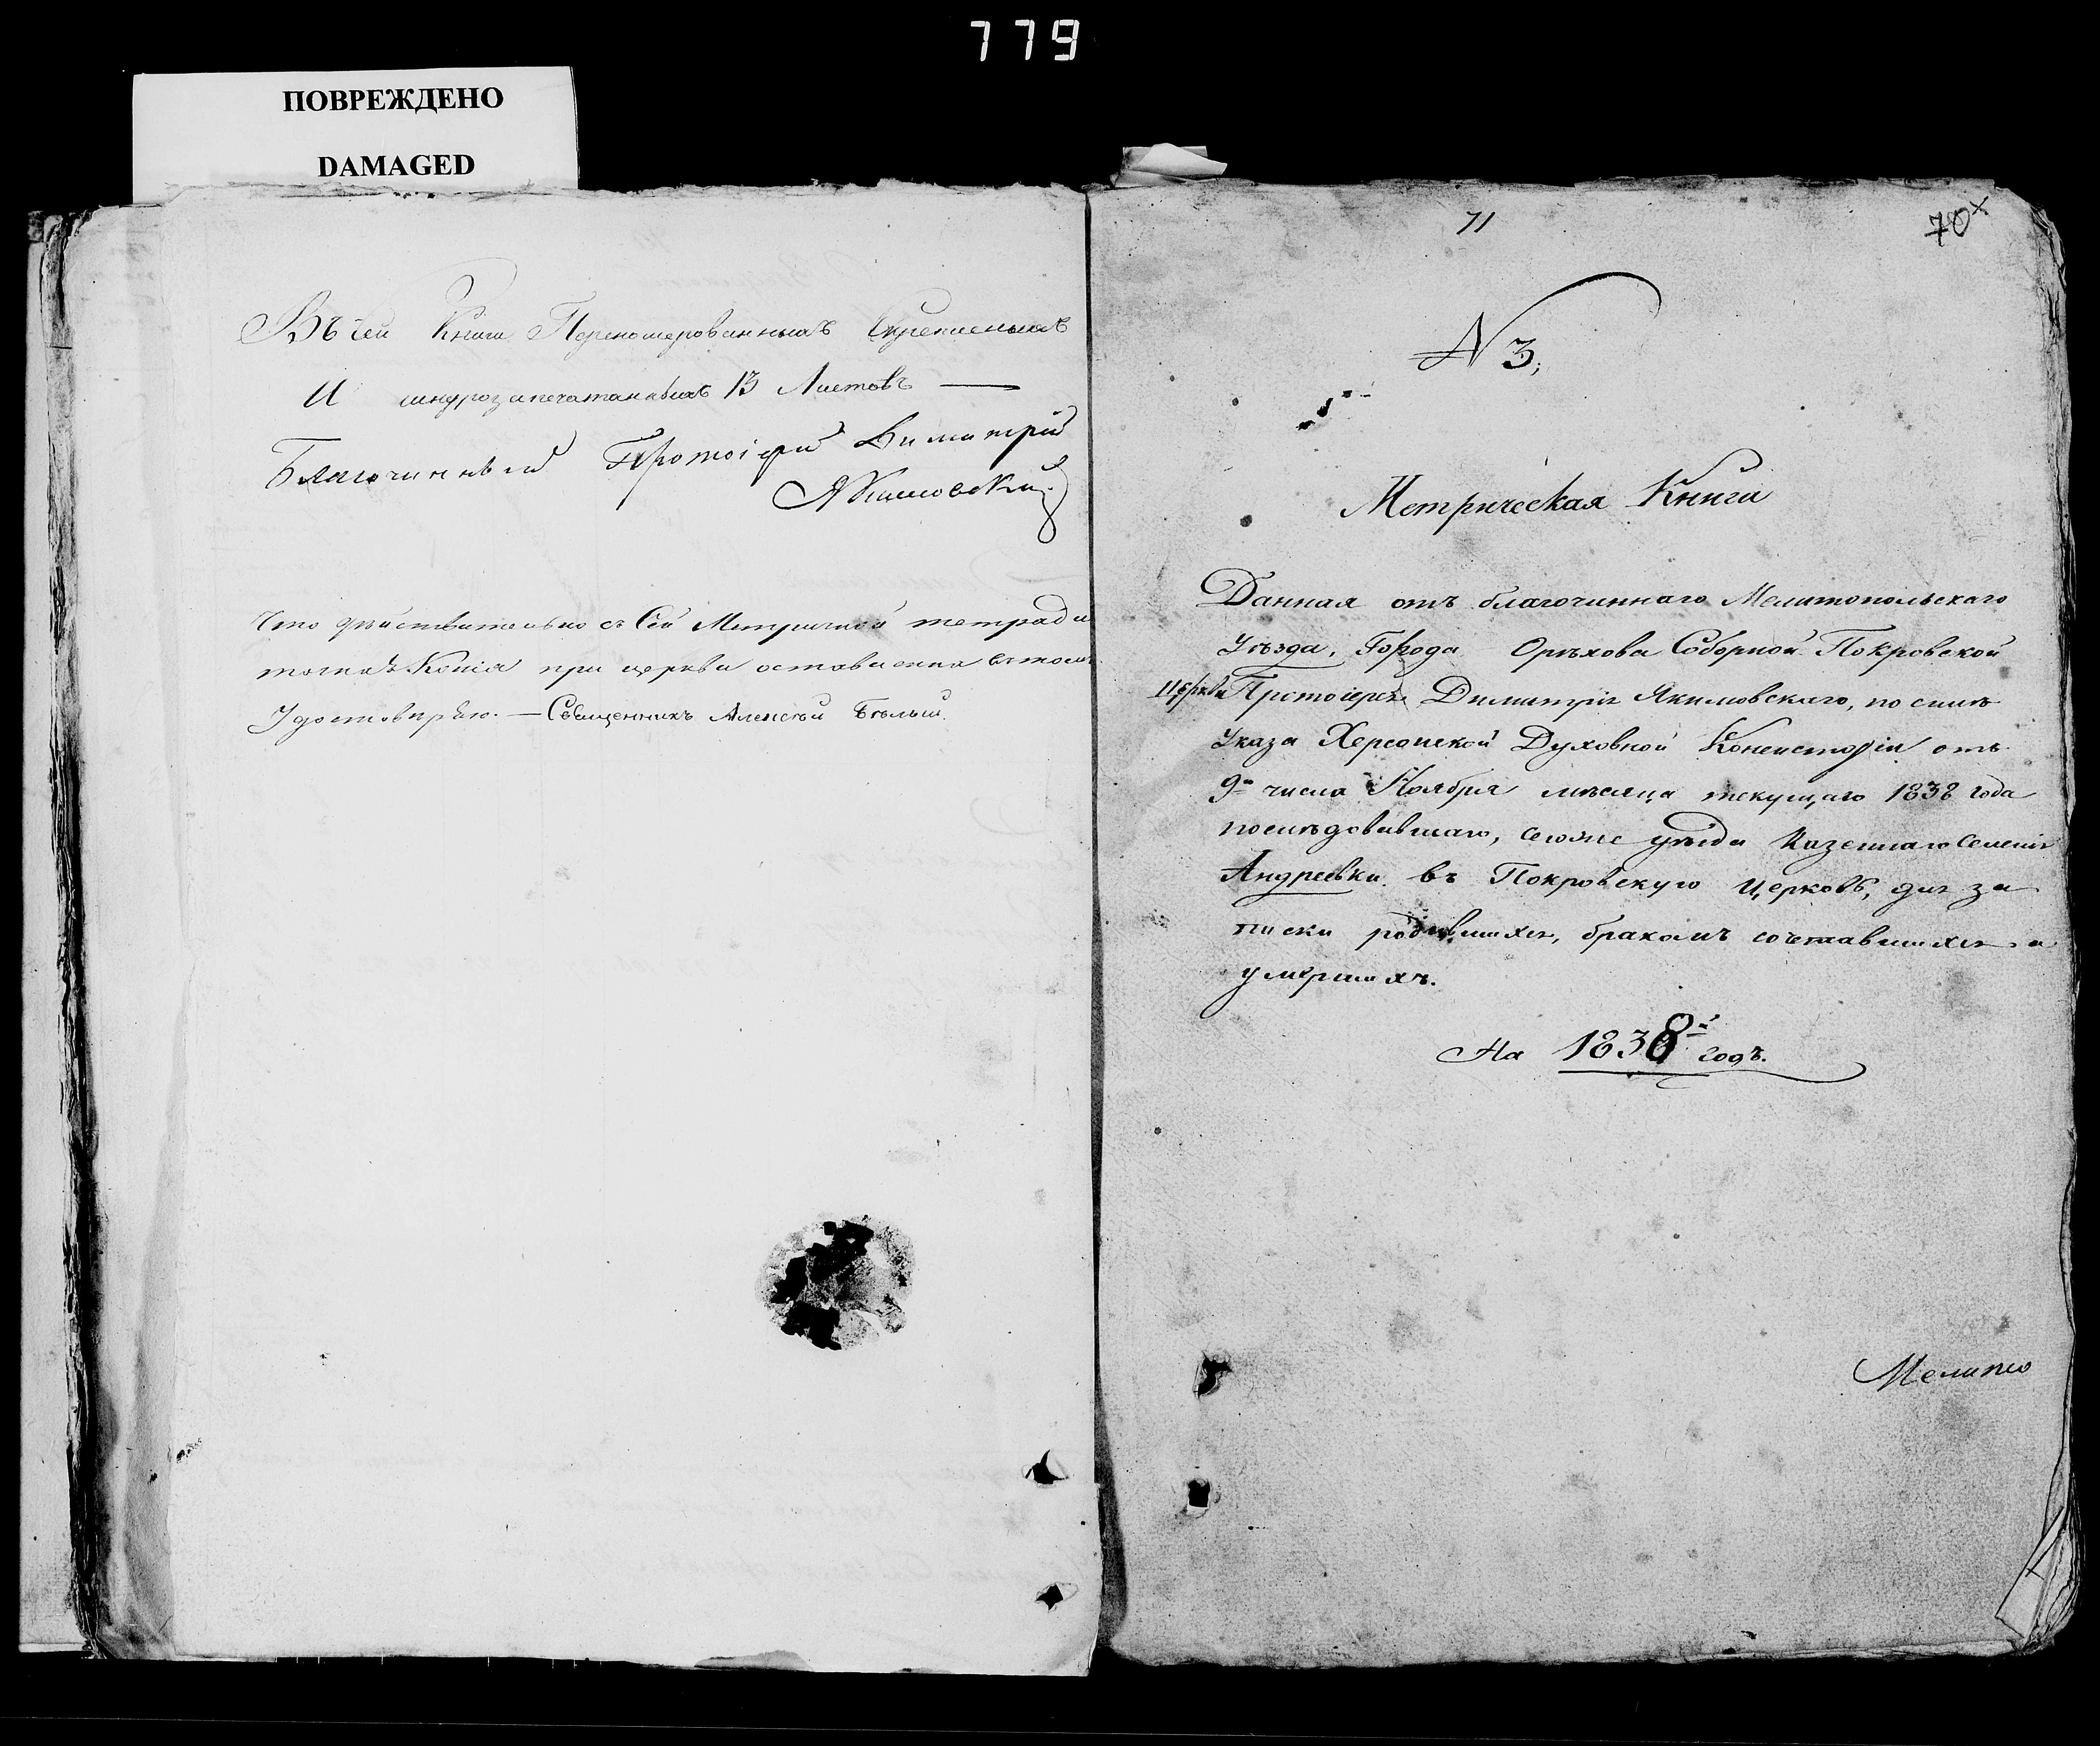 779
ПОВРЕЖДЕНО
DAMAGED
Въ сей Книги Переномерованныхъ Скрепленыхъ
И шнурозапечатанныхъ 13 Листовъ —
Благочинный Протоіерей Димитрій
Якимовскій
Что действительно съ Сей Метричной тетради
точная Копія при церкви оставлена въ томъ
Удостоверяю. — Священникъ Алексѣй Бѣлый.
71
70x
N 3;
Метрическая Книга
Данная отъ благочиннаго Мелитопольскаго
Уѣзда, Города Орѣхова Соборной Покровской
Церкви Протоіерея Димитрія Якимовскаго, по силѣ
Указа Херсонской Духовной Консисторіи отъ
9го числа Ноября мѣсяца текущаго 1838 года
послѣдовавшаго, сего же уѣзда Казеннаго Селенія
Андреевки въ Покровскую Церковь, для за
писки родившихся, бракомъ сочетавшихся и
умершихъ.
На 1838й годъ.
Мелито